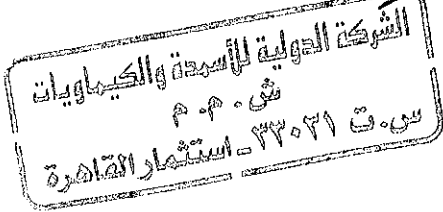 الشركة الدولية للأسمدة والكيماويات
ش . م . م
س . ت ٣٣٠٢١ - استثمار القاهرة